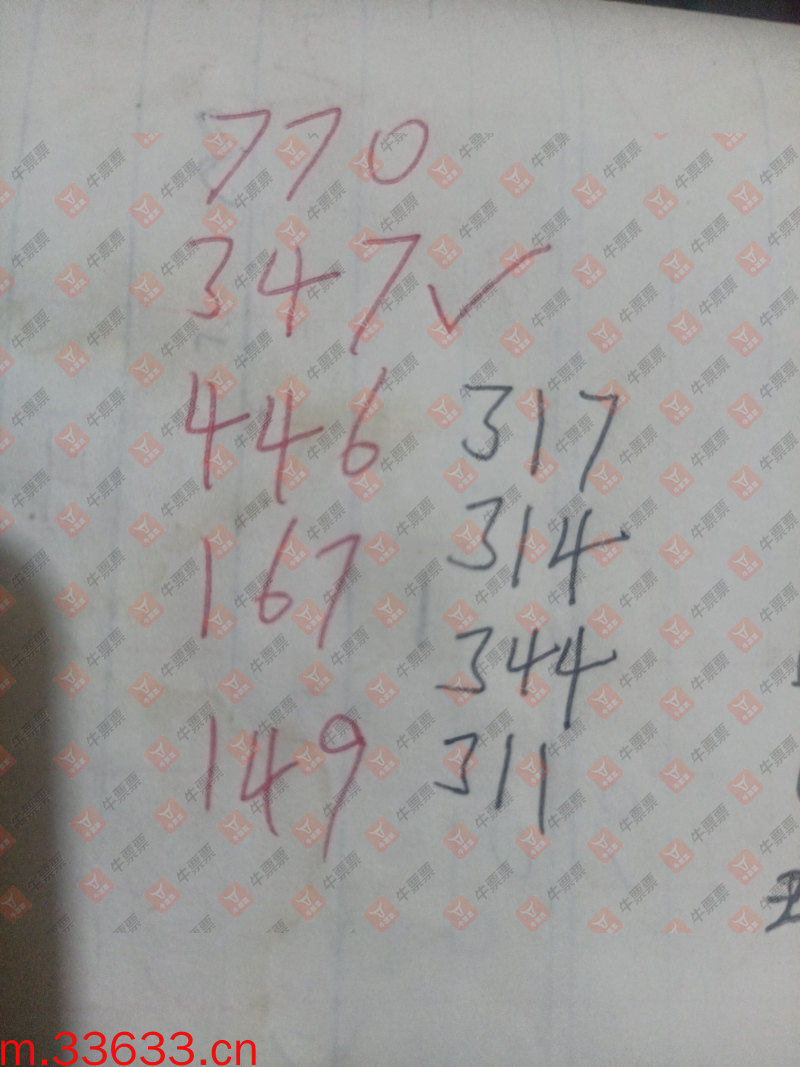 770
347✓
446 317
167 314
344
149 311
牛票票
m.33633.cn